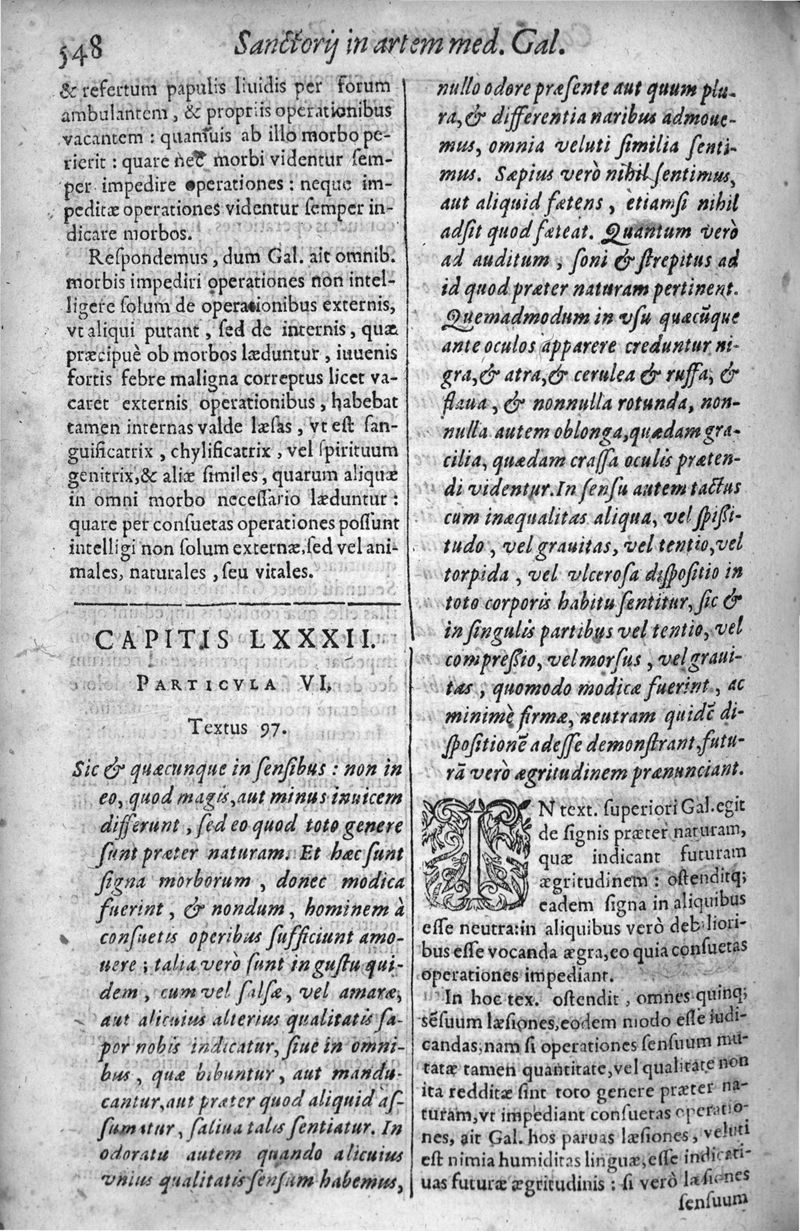 548
Sanctorij in artem med. Gal.
& refertum papulis liuidis per forum
ambulantem, & proprijs operationibus
vacantem : quamuis ab illo morbo pe-
rierit : quare nec morbi videntur ſem-
per impedire operationes : neque im-
peditæ operationes videntur ſemper in-
dicare morbos.
Reſpondemus, dum Gal. ait omnib.
morbis impediri operationes non intel-
ligere ſolum de operationibus externis,
vt aliqui putant, ſed de internis, quæ
præcipuè ob morbos læduntur, iuuenis
fortis febre maligna correptus licet va-
caret externis operationibus, habebat
tamen internas valde læſas, vt eſt ſan-
guificatrix, chylificatrix, vel ſpirituum
genitrix,& aliæ ſimiles, quarum aliquæ
in omni morbo neceſſario læduntur :
quare per conſuetas operationes poſſunt
intelligi non ſolum externæ,ſed vel ani-
males, naturales, ſeu vitales.
CAPITIS LXXXII.
PARTICVLA VI.
Textus 97.
Sic & quæcunque in ſenſibus : non in
eo, quod magis,aut minus inuicem
differunt, ſed eo quod toto genere
ſunt præter naturam. Et hæc ſunt
ſigna morborum, donec modica
fuerint, & nondum, hominem à
conſuetis operibus ſufficiunt amo-
uere ; talia verò ſunt in guſtu qui-
dem, cum vel ſalſæ, vel amaræ,
aut alicuius alterius qualitatis ſa-
por nobis indicatur, ſiue in omni-
bus, quæ bibuntur, aut mandu-
cantur,aut præter quod aliquid aſ-
ſumitur, ſaliua talis ſentiatur. In
odoratu autem quando alicuius
vnius qualitatis ſenſum habemus,
nullo odore præſente aut quum plu-
ra,& differentia naribus admoue-
mus, omnia veluti ſimilia ſenti-
mus. Sæpius verò nihil ſentimus,
aut aliquid fætens, etiamſi nihil
adſit quod fæteat. Quantum verò
ad auditum, ſoni & ſtrepitus ad
id quod præter naturam pertinent.
Quemadmodum in vſu quæcũque
ante oculos apparere creduntur ni-
gra,& atra,& cerulea & ruffa, &
flaua, & nonnulla rotunda, non-
nulla autem oblonga,quædam gra-
cilia, quædam craſſa oculis præten-
di videntur.In ſenſu autem tactus
cum inæqualitas aliqua, vel ſpiſſi-
tudo, vel grauitas, vel tentio,vel
torpida, vel vlceroſa diſpoſitio in
toto corporis habitu ſentitur, ſic &
in ſingulis partibus vel tentio, vel
compreſſio, vel morſus, vel graui-
tas, quomodo modicæ fuerint, ac
minimè firmæ, neutram quidẽ di-
ſpoſitionẽ adeſſe demonſtrant,futu-
rã verò ægritudinem prænunciant.
IN text. ſuperiori Gal.egit
de ſignis præter naturam,
quæ indicant futuram
ægritudinem : oſtenditq;
eadem ſigna in aliquibus
eſſe neutra:in aliquibus verò debiliori-
bus eſſe vocanda ægra,eo quia conſuetas
operationes impediant.
In hoc tex. oſtendit, omnes quinq;
sẽſuum læſiones,eodem modo eſſe iudi-
candas;nam ſi operationes ſenſuum mu-
tatæ tamen quantitate,vel qualitate non
ita redditæ ſint toto genere præter na-
turam,vt impediant conſuetas operatio-
nes, ait Gal. hos paruas læſiones, veluti
eſt nimia humiditas linguæ,eſſe indicati-
uas futuræ ægritudinis : ſi verò læſiones
ſenſuum